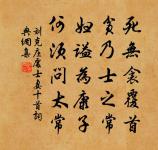 死無衾覆首
貧乃士之常
婦謚為康子
何須問太常
劉克庄處士妻十首詞
典網集